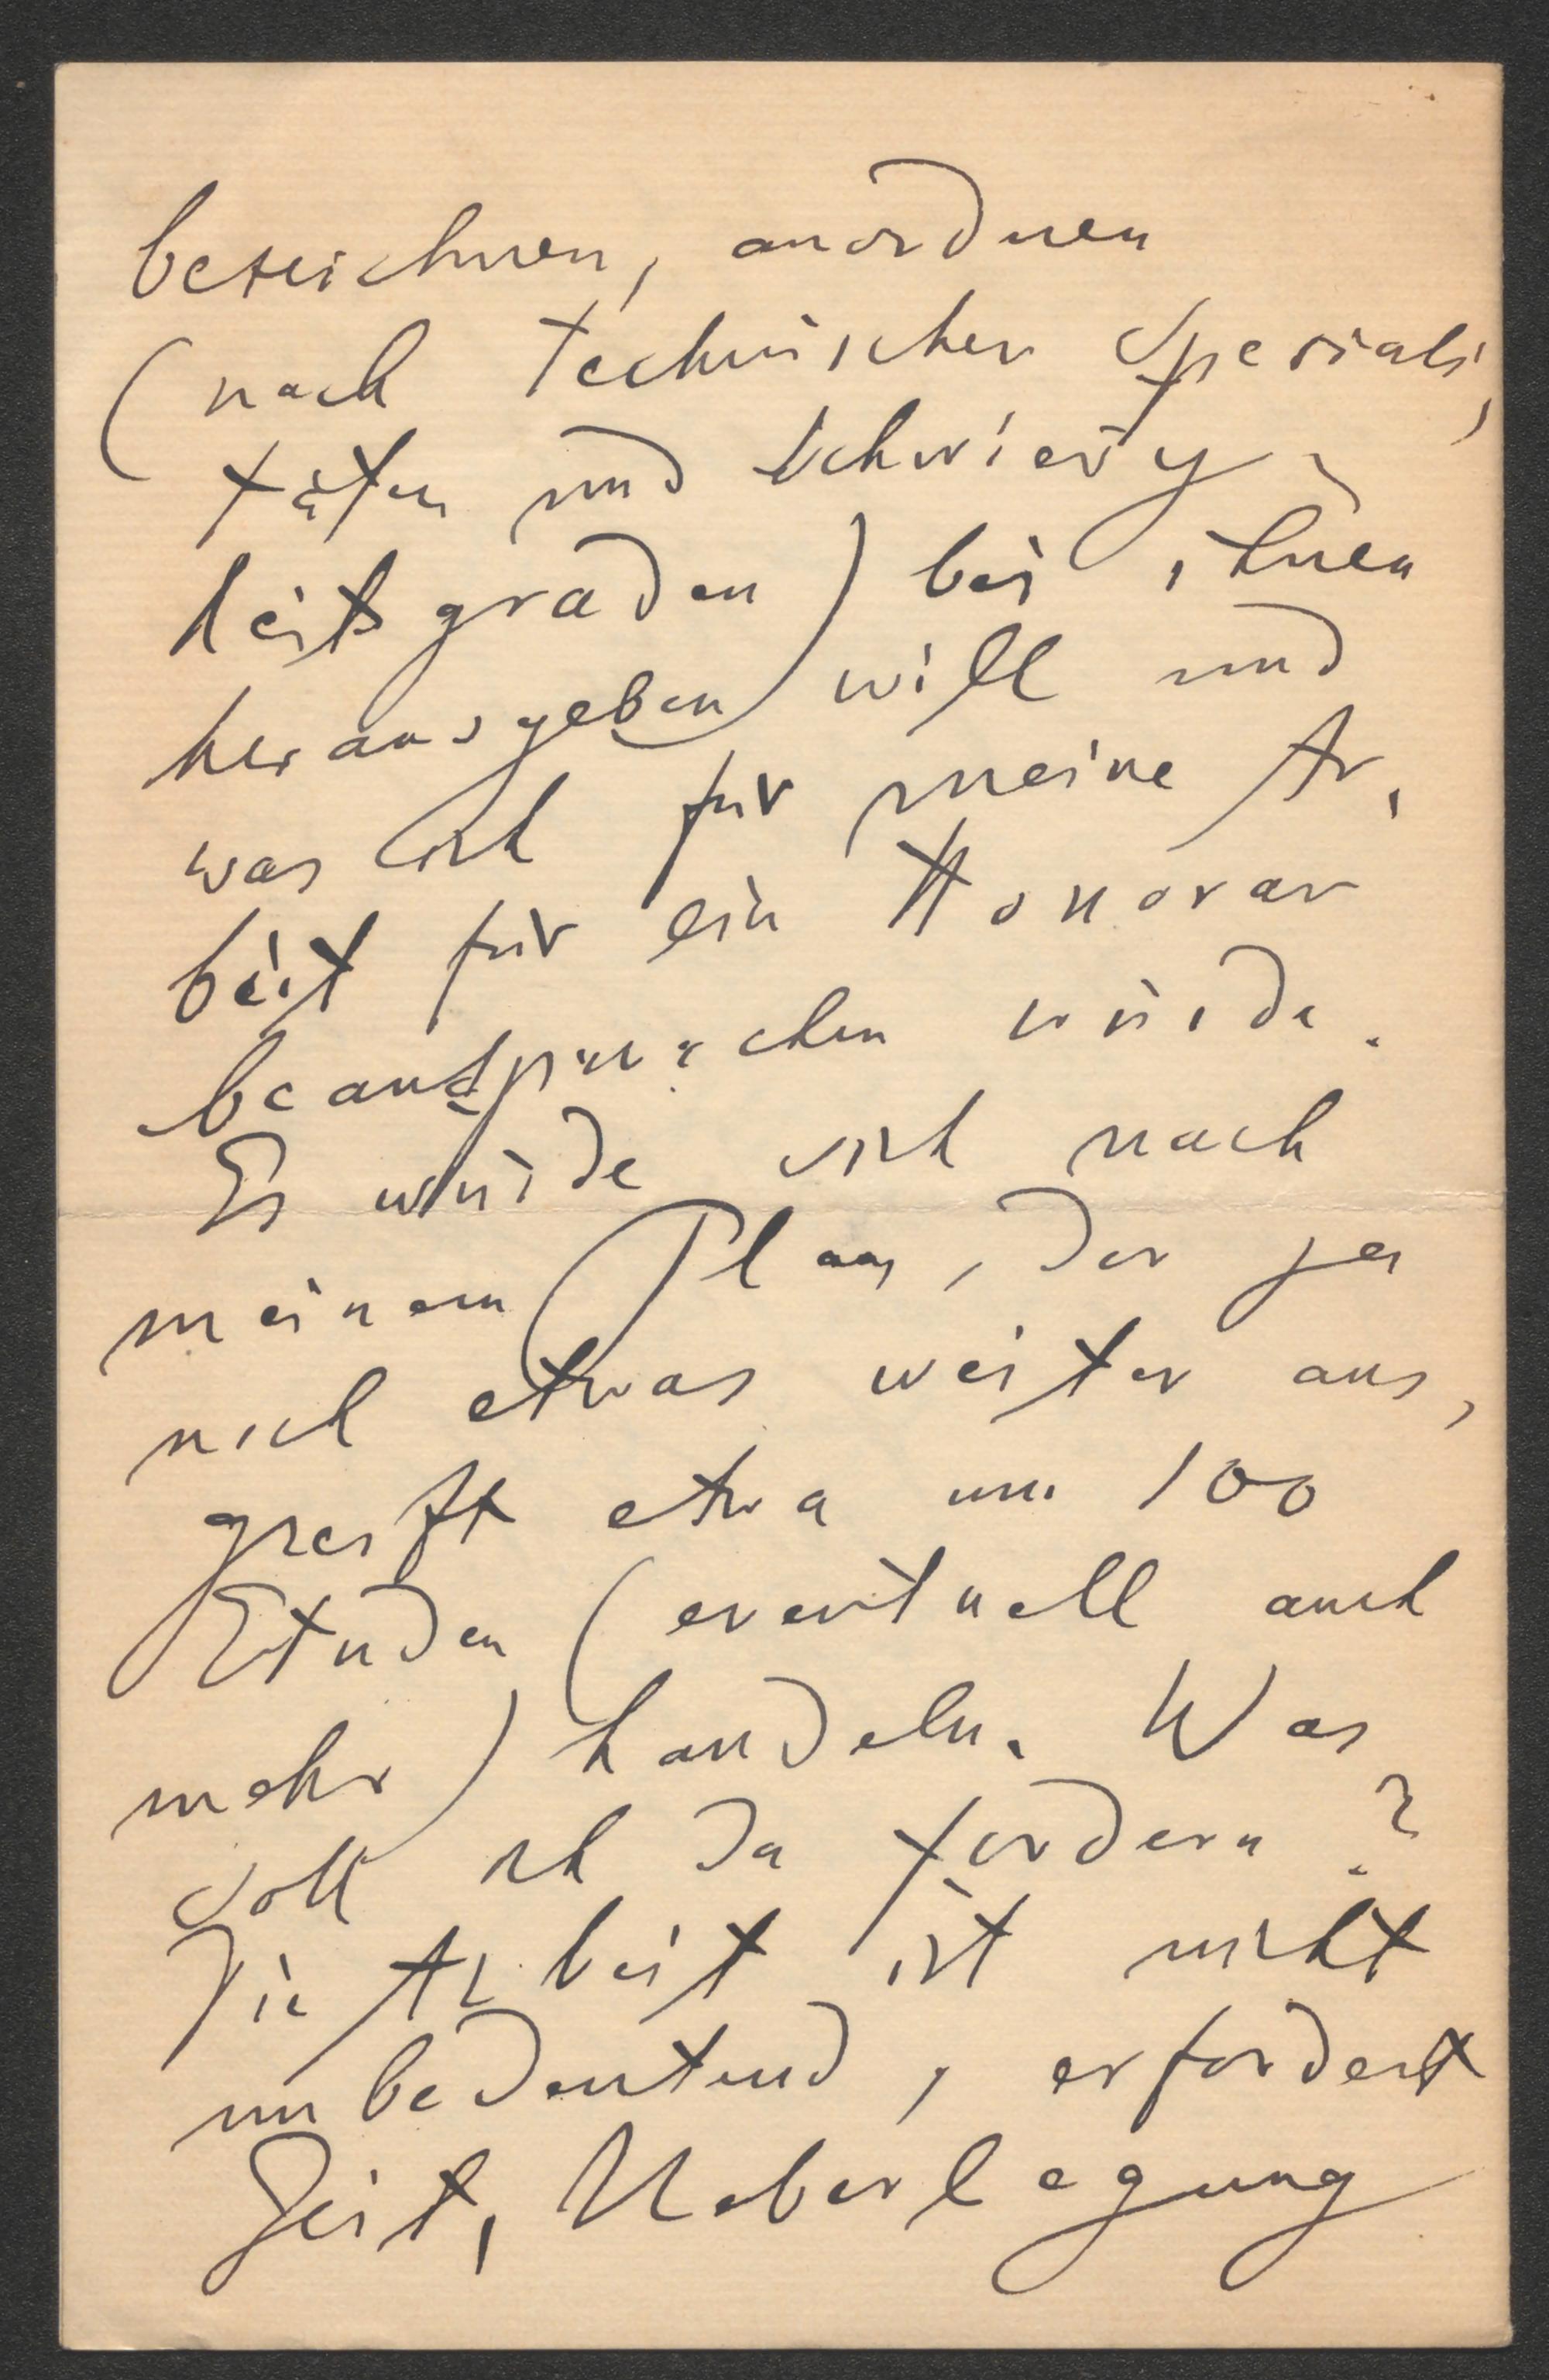 bezeichnen, anordnen
(nach technischen Speziali,
täten und Schwierig-
keitsgraden) bei ihnen
herausgeben will und
was ich für meine Ar,
beit für ein Honorar
beanspruchen würde.
Es würde sich nach
meinem Plan, der ja
noch etwas weiter aus,
greift etwa um 100
Etuden (eventuell auch
mehr) handeln. Was
soll ich da fordern?
Die Arbeit ist nicht
unbedeutend, erfordert
Zeit, Ueberlegung